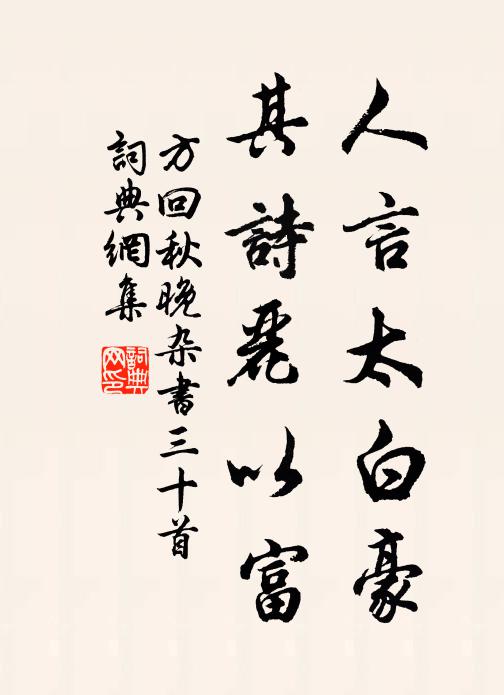 人言太白豪
其詩麗以富
方回秋晚杂書三十首
詞典網集
詞典網印